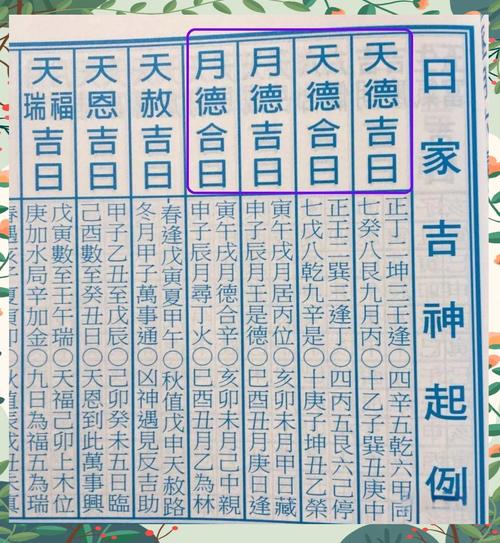 日家吉神起例
天德吉日
正丁二坤三壬逢○四辛五乾六甲同
七癸八艮九月丙○十乙子巽丑庚中
天德合日
正壬二巽三逢丁○四丙五艮六己停
七戊八乾九辛是○十庚子坤丑乙榮
月德吉日
寅午戌月居丙位○亥卯未月甲日藏
申子辰月壬是德○巳酉丑月庚日逢
月德合日
寅午戌月德合辛○亥卯未月己中親
申子辰月尋丁火○巳酉丑月乙為林
天赦吉日
春逢戊寅夏甲午○秋值戊申天赦路
冬月甲子萬事通○凶神遇見反吉助
天恩吉日
甲子乙丑至戊辰○己卯癸未五日臨
己酉數至癸丑日○天恩到此萬事興
天福瑞吉日
戊寅數至午瑞○天福己卯上木位
庚加水局辛加金○九日為福五為瑞